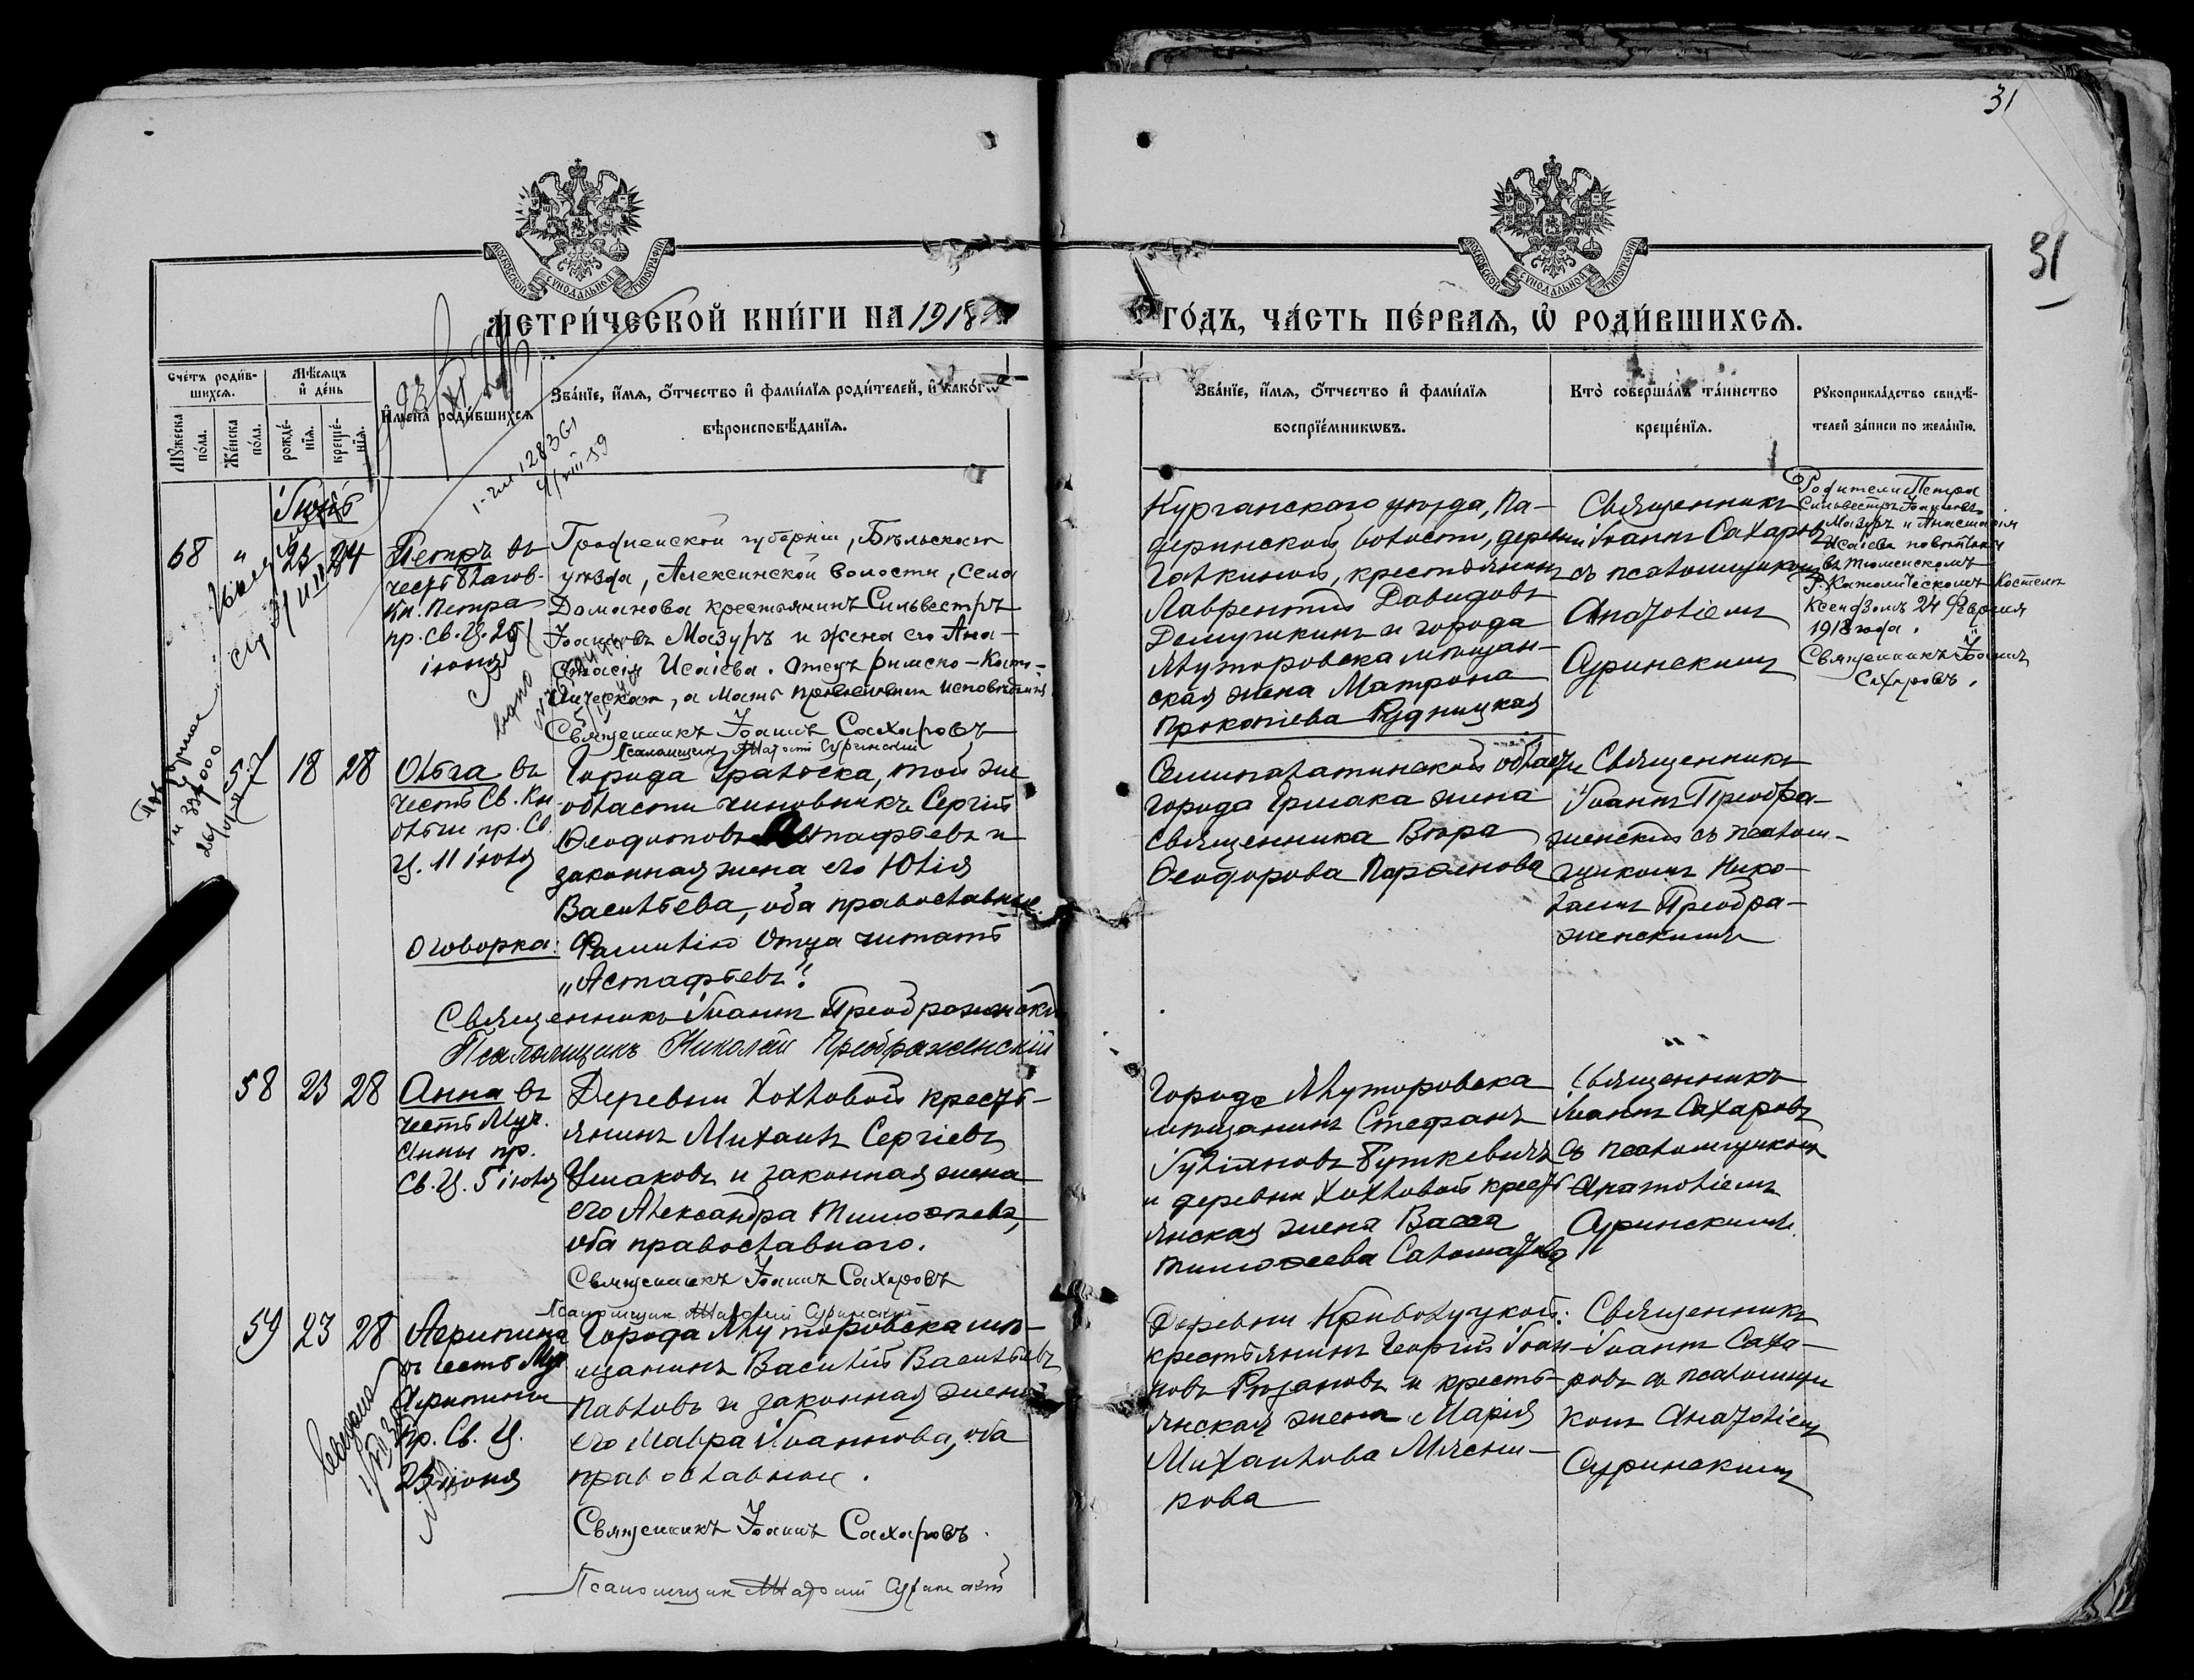 31
31
МОСКОВСКОЙ СѴНОДАЛЬНОЙ ТИПОГРАФІИ
МОСКОВСКОЙ СѴНОДАЛЬНОЙ ТИПОГРАФІИ
МЕТРИ́ЧЕСКОЙ КНИ́ГИ НА 1918
ГО́ДЪ, ЧА́СТЬ ПЕ́РВАѦ, Ѡ҆ РОДИ́ВШИХСѦ.
Сче́тъ роди́в-
шихсѧ.
Мꙋ́жеска по́ла.
Же́нска по́ла.
Мѣ́сѧцъ
и҆ де́нь
рожде́-
нїѧ.
креще́-
нїѧ.
И҆мена̀ роди́вшихсѧ
Зва́нїе, и҆́мѧ, ѻ҆́тчество и҆ фами́лїѧ роди́телей, и҆ како́гѡ
вѣроисповѣ́данїѧ.
Зва́нїе, и҆́мѧ, ѻ҆́тчество и҆ фами́лїѧ
воспрїе́мникѡвъ.
Кто̀ соверша́лъ та́инство
креще́нїѧ.
Рꙋкоприкла́дство свидѣ́-
телей за́писи по жела́нїю.
128361
Іюнь
68 " 23 24
Петръ въ
честь Благов.
Кн. Петра
пр. св. Ц. 25
іюня
Гродненской губерніи, Бѣльскаго
уѣзда, Алексинской волости, села
Доманова крестьянинъ Сильвестръ
Іоанновъ Мазуръ и жена его Ана-
стасія Исаіева. Отецъ римско-Като-
лическаго, а мать православнаго исповѣданія
Священникъ Іоаннъ Сахаровъ
Псаломщикъ Анатолій Суринскій
Курганскаго уѣзда, Па-
деринской волости, деревни
Галкиной, крестьянинъ
Лаврентій Давидовъ
Демушкинъ и города
Ялуторовска мѣщан-
ская жена Матрона
Прокопіева Рудницкая
Священникъ
Іоаннъ Сахаровъ
съ псаломщикомъ
Анатоліемъ
Суринскимъ
Родители Петра
Сильвестръ Іоанновъ
Мазуръ и Анастасія
Исаіева повѣнчаны
въ Тюменскомъ
Р. Католическомъ Костелѣ
Ксендзомъ 24 Февраля
1918 года.
Священникъ Іоаннъ
Сахаровъ.
57 18 28
Ольга въ
честь Св. Кн
Ольги пр. Св.
Ц. 11 іюля
Города Уральска, той же
области чиновникъ Сергій
Ѳеодотовъ Астафьевъ и
законная жена его Юлія
Васильева, оба православные.
Оговорка: Фамилію Отца читать
„Астафьевъ".
Священникъ Іоаннъ Преображенскій
Псаломщикъ Николай Преображенскій
Семипалатинской области
города Ермака жена
священника Вѣра
Ѳеодорова Парѳенова
Священникъ
Іоаннъ Преобра-
женскій съ псалом-
щикомъ Нико-
лаемъ Преобра-
женскимъ
58 23 28
Анна въ
честь Муч.
Анны пр.
Св. Ц. 5 іюля
Деревни Хохловой кресть-
янинъ Михаилъ Сергіевъ
Ушаковъ и законная жена
его Александра Тимоѳеева,
оба православнаго.
Священникъ Іоаннъ Сахаровъ
Псаломщик Анатолий Суринский
Города Ялуторовска
мѣщанинъ Стефанъ
Іуліановъ Буткевичъ
и деревни Хохловой кресть-
янская жена Васса
Тимоѳеева Саломатова
Священникъ
Іоаннъ Сахаровъ
съ псаломщикомъ
Анатоліемъ
Суринскимъ.
59 23 28
Агрипина
въ честь Муч
Агрипины
пр. Св. Ц.
23 іюня
Города Ялуторовска мѣ-
щанинъ Василій Васильевъ
Павловъ и законная жена
его Мавра Іоаннова, оба
православные.
Священникъ Іоаннъ Сахаровъ.
Псаломщик Анатолий Суринский
Деревни Криволуцкой:
крестьянинъ Георгій Іоан-
новъ Рязановъ и кресть-
янская жена Марія
Михаилова Мясни-
кова
Священникъ
Іоаннъ Саха-
ровъ съ псаломщи
комъ Анатоліемъ
Суринскимъ